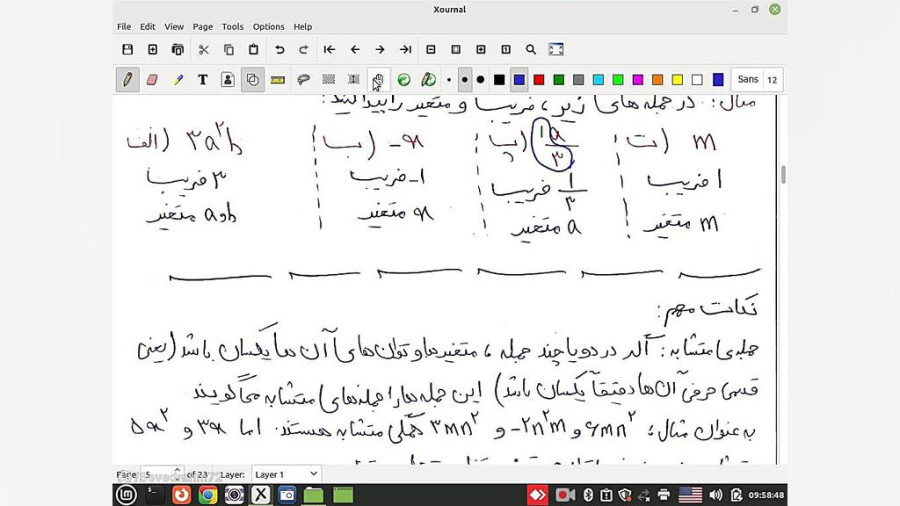 Xournal
File Edit View Page Tools Options Help
Sans 12
مثال: در جمله های زیر، ضریب و متغیر را پیدا کنید:
الف) 3a²b
ب) -x
پ) 1a/3
ت) m
3 ضریب
-1 ضریب
1/3 ضریب
1 ضریب
a و b متغیر
x متغیر
a متغیر
m متغیر
نکات مهم:
جمله ی متشابه: اگر در دو یا چند جمله، متغیرها و توان های آن ها یکسان باشد (یعنی
قسمت حرفی آن ها دقیقاً یکسان باشد) این جمله ها را جمله های متشابه می گویند
به عنوان مثال: 6mn² و -2n²m و 3mn² همگی متشابه هستند. اما 3x و 5x²
Page 5 of 23 Layer: Layer 1
09:58:48